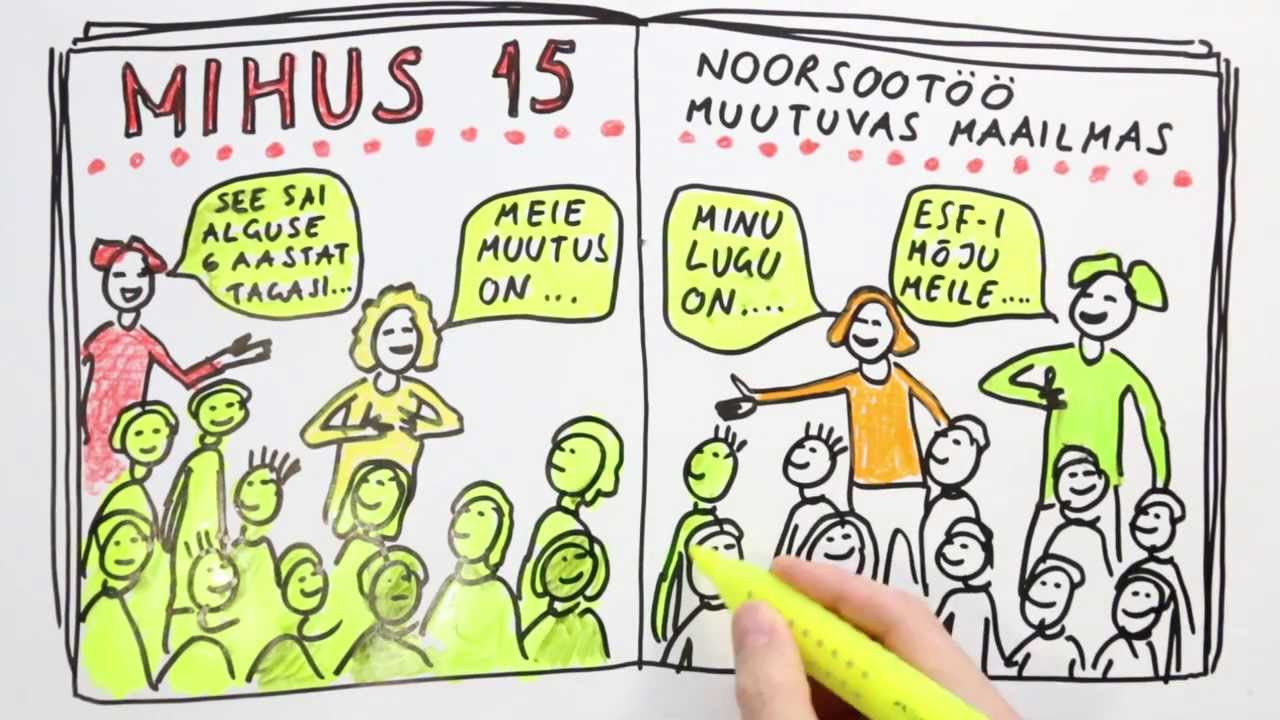 MIHUS 15
SEE SAI
ALGUSE
6 AASTAT
TAGASI...
MEIE
MUUTUS
ON ...
NOORSOOTÖÖ
MUUTUVAS MAAILMAS
MINU
LUGU
ON....
ESF-I
MÕJU
MEILE....